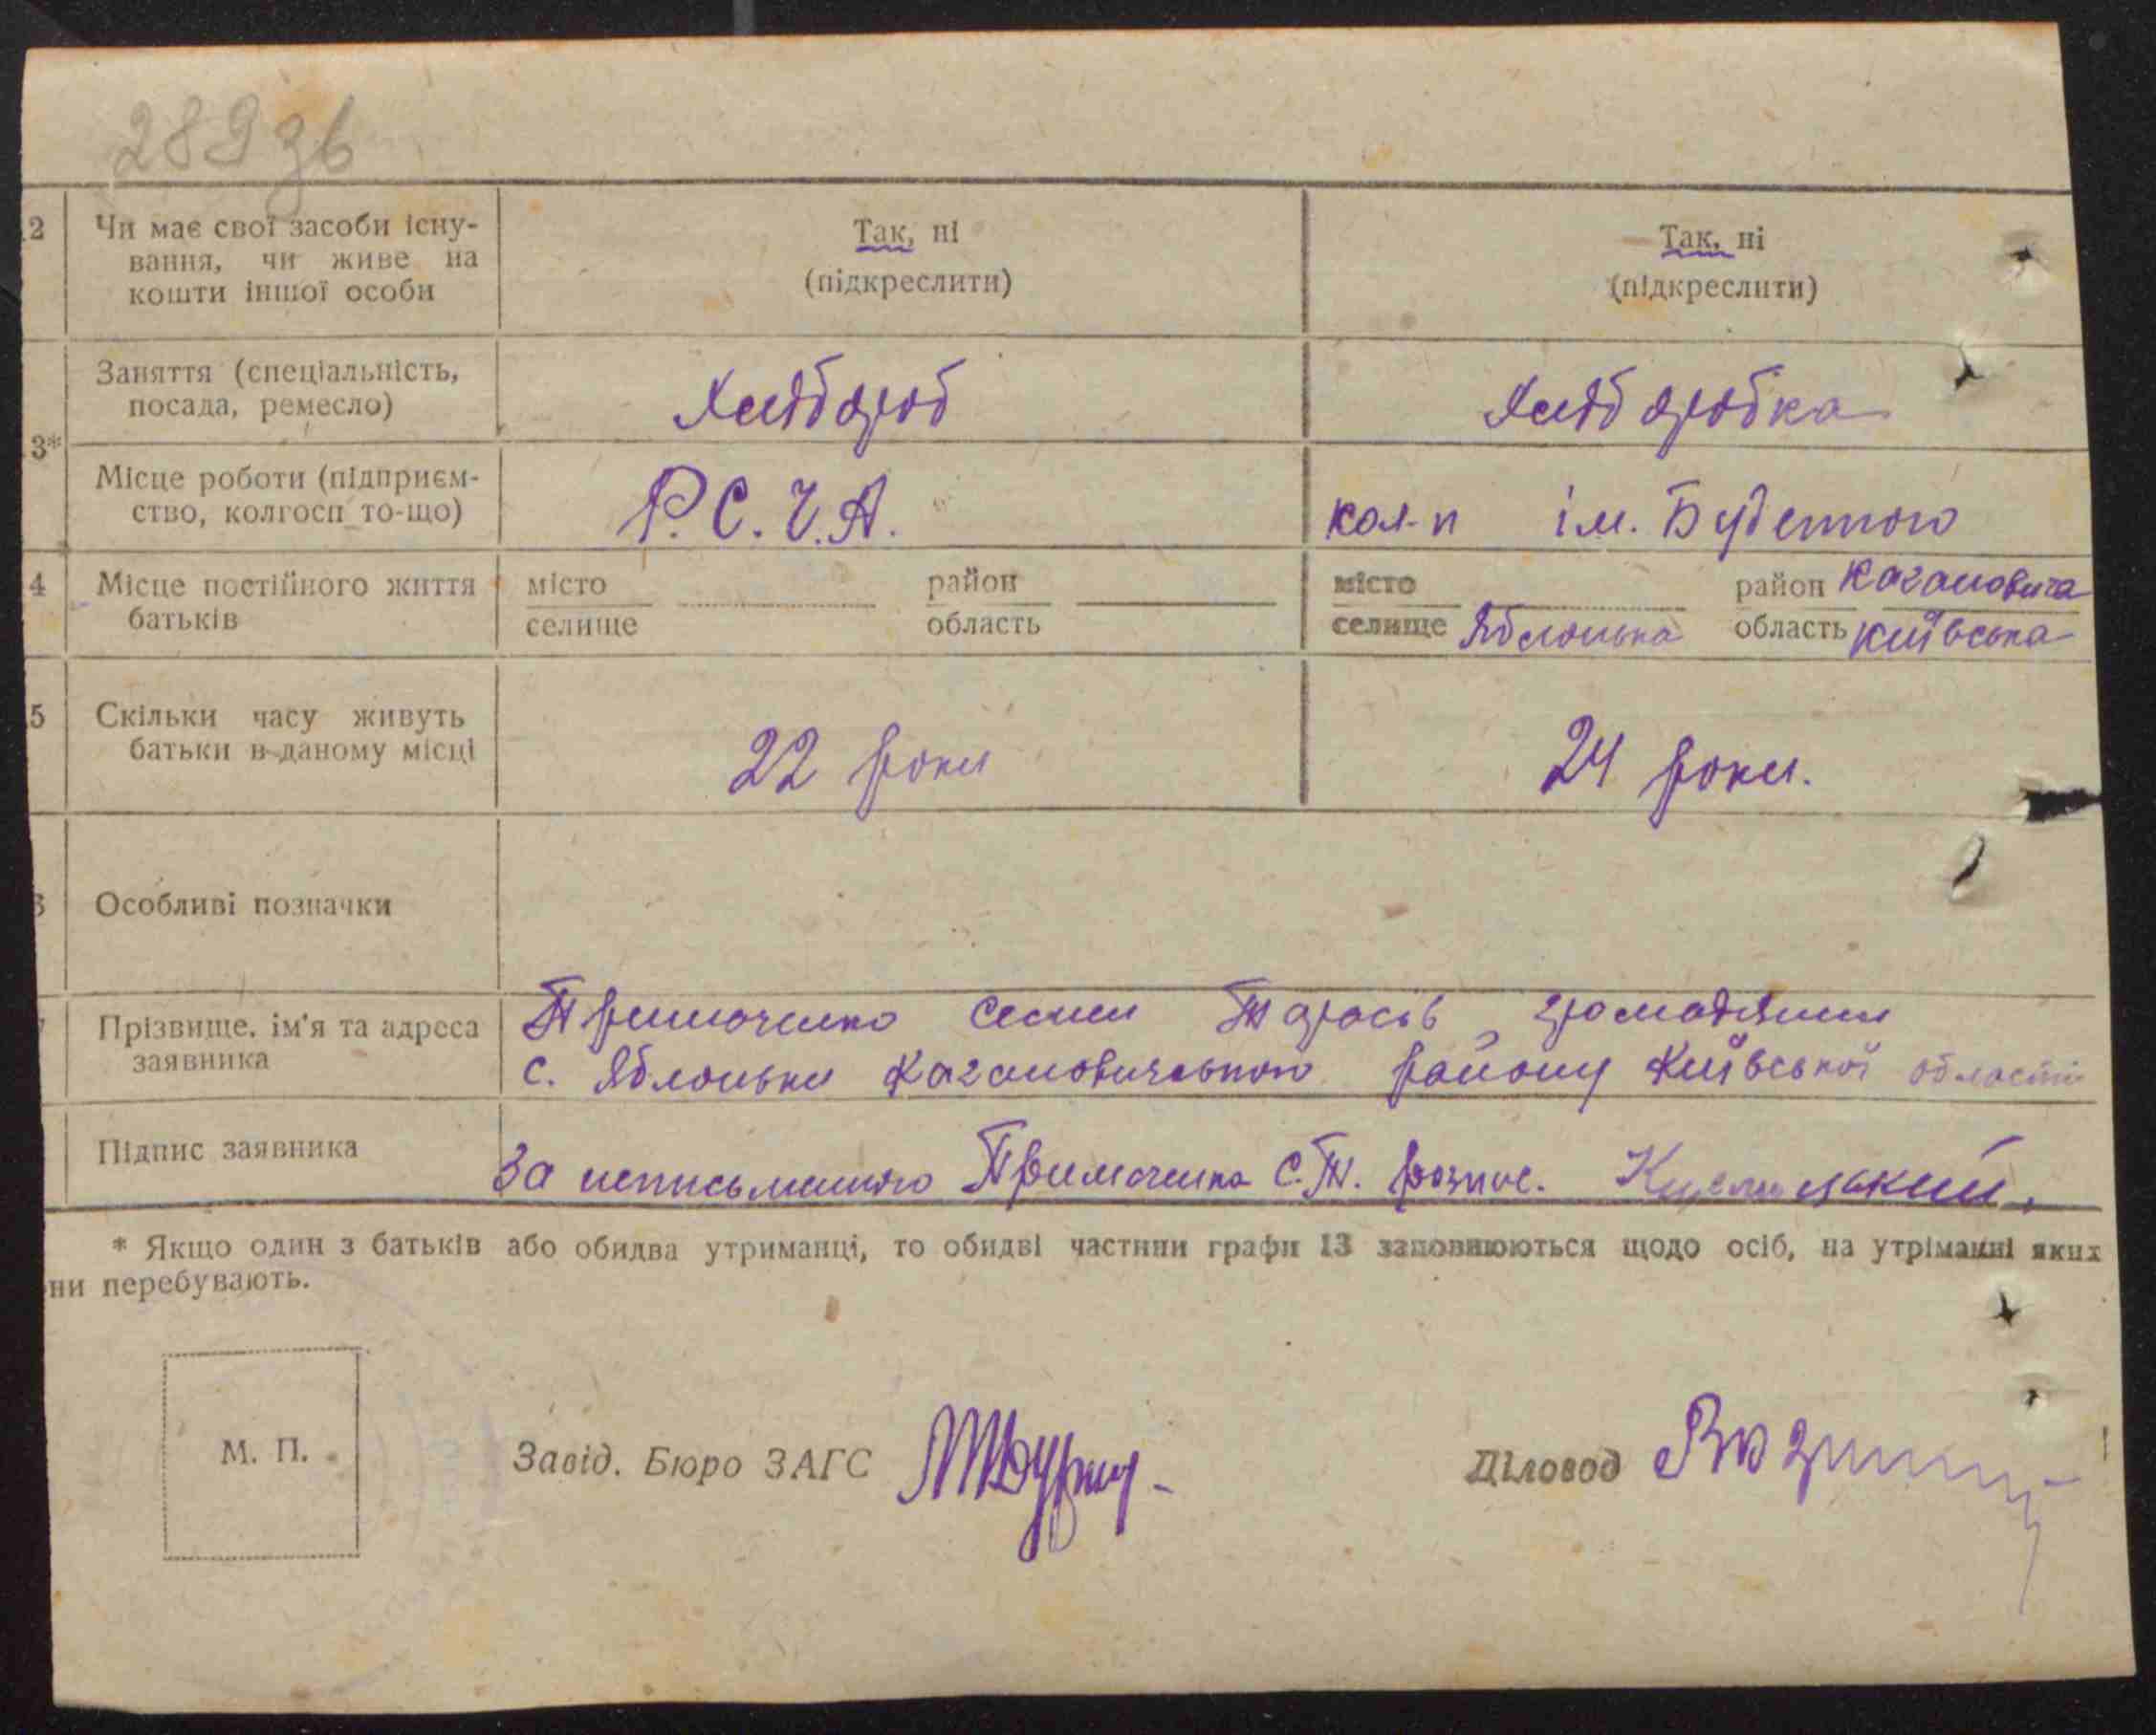 289 зв
2 Чи має свої засоби існу-
вання, чи живе на
кошти іншої особи
Так, ні
(підкреслити)
Так, ні
(підкреслити)
3*
Заняття (спеціальність,
посада, ремесло)
Хлібороб
Хліборобка
Місце роботи (підприєм-
ство, колгосп то-що)
Р.С.Ч.А.
кол-п ім. Буденного
4 Місце постійного життя
батьків
місто район
селище область
місто район Кагановича
селище Яблонька область Київська
5 Скільки часу живуть
батьки в даному місці
22 роки
24 роки.
Особливі позначки
Прізвище, ім'я та адреса
заявника
Примаченко Семен Тарасів, громадянин
с. Яблоньки Кагановичського району Київської області
Підпис заявника
За неписьменного Примаченка С.Т. розпис.
* Якщо один з батьків або обидва утриманці, то обидві частини графи 13 заповнюються щодо осіб, на утріманні яких
ни перебувають.
М. П.
Завід. Бюро ЗАГС
Діловод